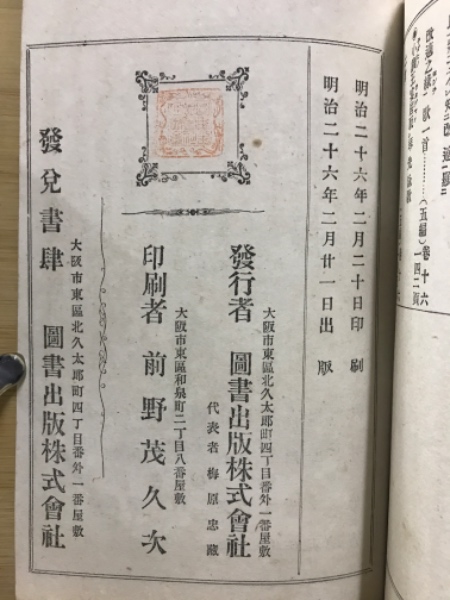 明治二十六年二月二十日印刷
明治二十六年二月廿一日出版
大阪市東區北久太郎町四丁目番外一番屋敷
發行者 圖書出版株式會社
代表者 梅原忠藏
大阪市東區和泉町二丁目八番屋敷
印刷者 前野茂久次
大阪市東區北久太郎町四丁目番外一番屋敷
發兌書肆 圖書出版株式會社